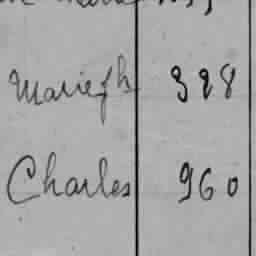 Mariefh 328
Charles 960